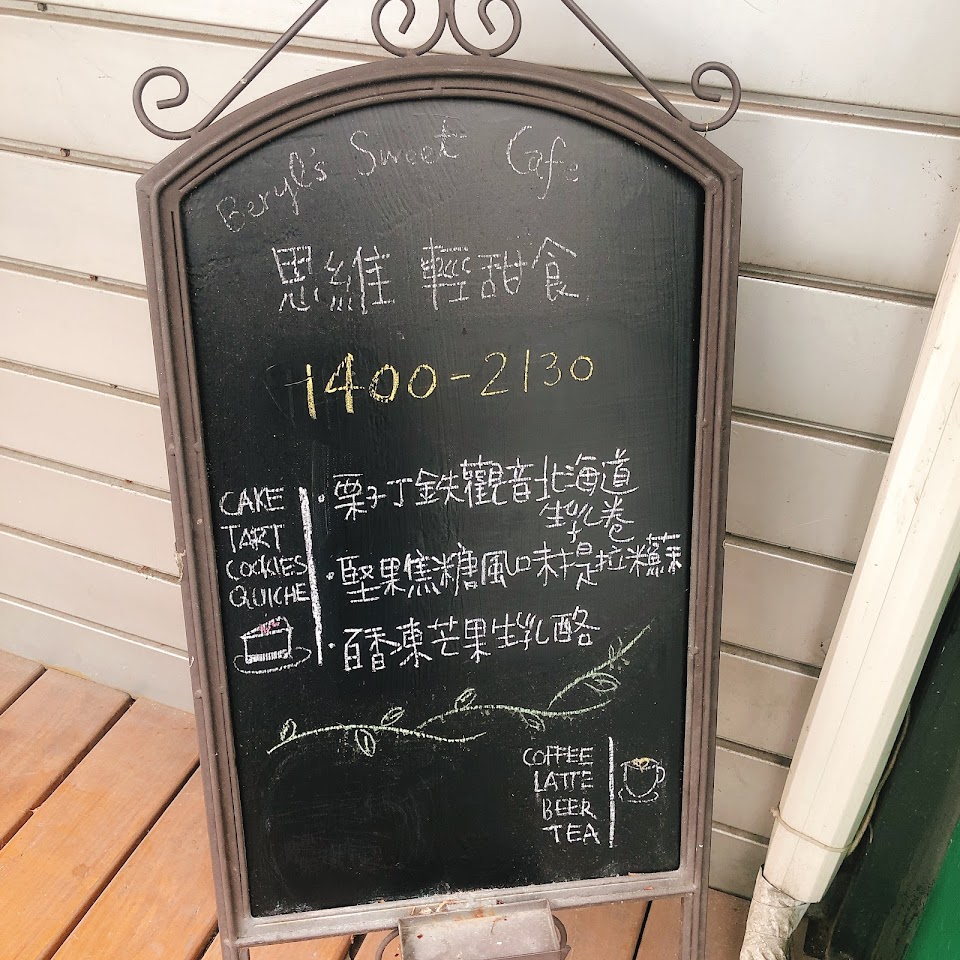 Beryl's Sweet Cafe
思維 輕甜食
1400-2130
CAKE
TART
COOKIES
QUICHE
·栗子丁鉄觀音北海道
生乳卷
·堅果焦糖風味提拉米蘇
·百香凍芒果生乳酪
COFFEE
LATTE
BEER
TEA